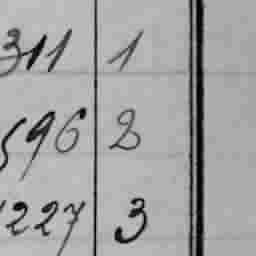 311 1
596 2
227 3